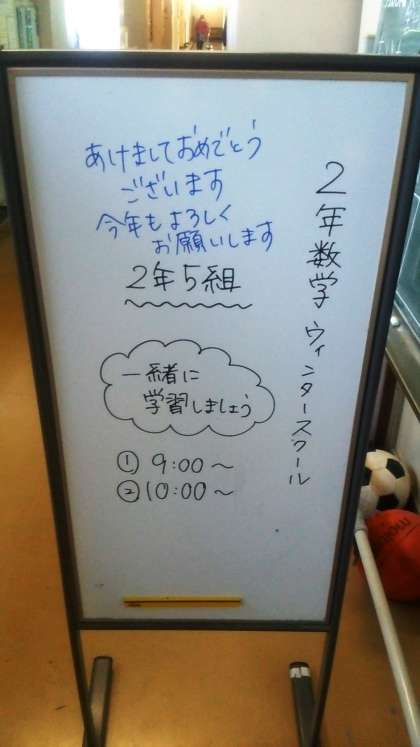 ２年数学 ウィンタースクール
あけましておめでとう
ございます
今年もよろしく
お願いします
２年５組
一緒に
学習しましょう
① 9:00～
② 10:00～